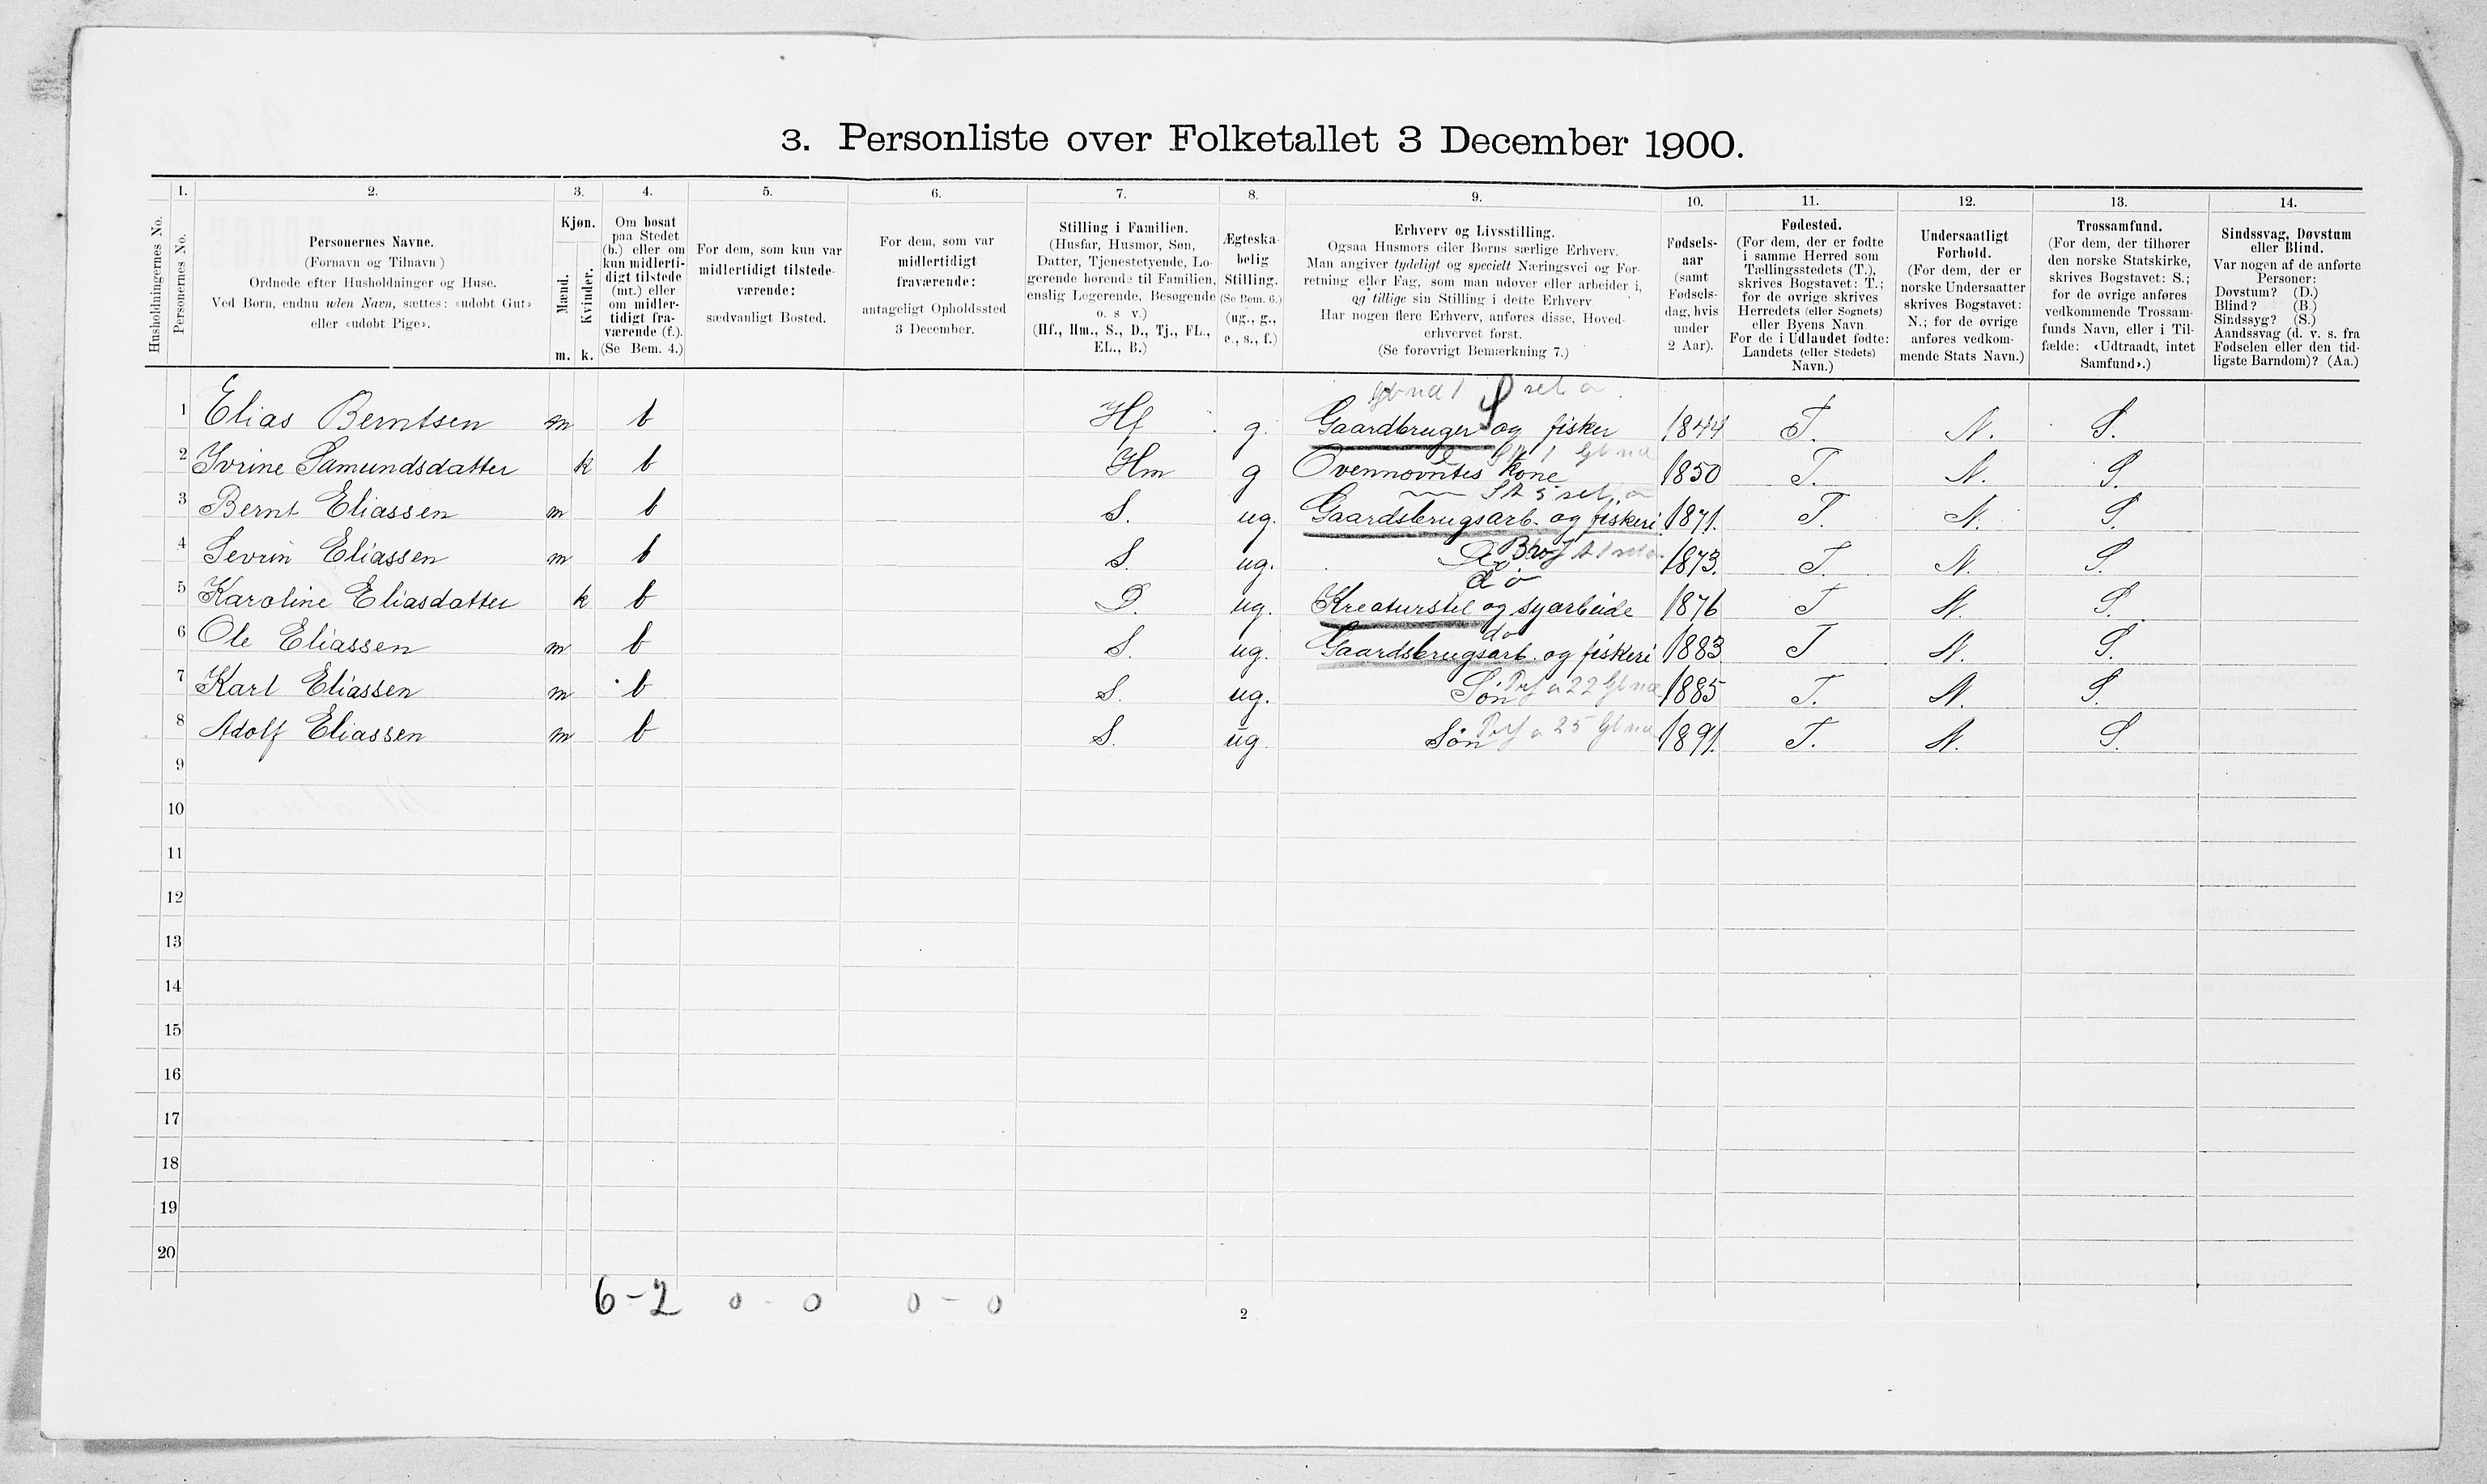 3. Personliste over Folketallet 3 December 1900.
Husholdningernes No.
1. Personernes No.
2.
Personernes Navne.
(Fornavn og Tilnavn)
Ordnede efter Husholdninger og Huse.
Ved Børn, endnu uden Navn, sættes: «udøbt Gut»
eller «udøbt Pige».
3.
Kjøn.
Mænd. Kvinder.
m. k.
4.
Om bosat
paa Stedet
(b.) eller om
kun midlerti-
digt tilstede
(mt.) eller
om midler-
tidigt fra-
værende (f.).
(Se Bem. 4.)
5.
For dem, som kun var
midlertidigt tilstede-
værende:
sædvanligt Bosted.
6.
For dem, som var
midlertidigt
fraværende:
antageligt Opholdssted
3 December.
7.
Stilling i Familien.
(Husfar, Husmor, Søn,
Datter, Tjenestetyende, Lo-
gerende hørende til Familien,
enslig Logerende, Besøgende
o. s v.)
(Hf., Hm., S., D., Tj., FL.,
EL., B.)
8.
Ægteska-
belig
Stilling.
(Se Bem. 6.)
(ug., g.,
e., s., f.)
9.
Erhverv og Livsstilling.
Ogsaa Husmors eller Børns særlige Erhverv.
Man angiver tydeligt og specielt Næringsvei og For-
retning eller Fag, som man udøver eller arbeider i,
og tillige sin Stilling i dette Erhverv
Har nogen flere Erhverv, anføres disse, Hoved-
erhvervet først.
(Se forøvrigt Bemærkning 7.)
10.
Fødsels-
aar
(samt
Fødsels-
dag, hvis
under
2 Aar).
11.
Fødested.
(For dem, der er fødte
i samme Herred som
Tællingsstedets (T.),
skrives Bogstavet: T.;
for de øvrige skrives
Herredets (eller Sognets)
eller Byens Navn.
For de i Udlandet fødte:
Landets (eller Stedets)
Navn.)
12.
Undersaatligt
Forhold.
(For dem, der er
norske Undersaatter
skrives Bogstavet:
N.; for de øvrige
anføres vedkom-
mende Stats Navn.)
13.
Trossamfund.
(For dem, der tilhører
den norske Statskirke,
skrives Bogstavet: S.;
for de øvrige anføres
vedkommende Trossam-
funds Navn, eller i Til-
fælde: «Udtraadt, intet
Samfund».)
14.
Sindssvag, Døvstum
eller Blind.
Var nogen af de anførte
Personer:
Døvstum? (D.)
Blind? (B.)
Sindssyg? (S.)
Aandssvag (d. v. s. fra
Fødselen eller den tid-
ligste Barndom)? (Aa.)
1 Elias Berntsen m b Hf g. Gaardbruger og fisker 1844 T. N. S.
2 Ivrine Samundsdatter k b Hm g Ovennevntes kone 1850 T. N. S.
3 Bernt Eliassen m b S. ug. Gaardsbrugsarb. og fiskeri 1871. T. N. S.
4 Sevrin Eliassen m b S. ug. Do 1873. T. N. S.
do
5 Karoline Eliasdatter k b D. ug. Kreaturstel og syarbeide 1876 T N. S.
do
6 Ole Eliassen m b S. ug. Gaardsbrugsarb. og fiskeri 1883 T N. S.
7 Karl Eliassen m b S. ug. Søn 1885 T. N. S.
8 Adolf Eliassen m b S. ug. Søn 1891. T. N. S.
9
10
11
12
13
14
15
16
17
18
19
20
6 - 2 0 - 0 0 - 0
2